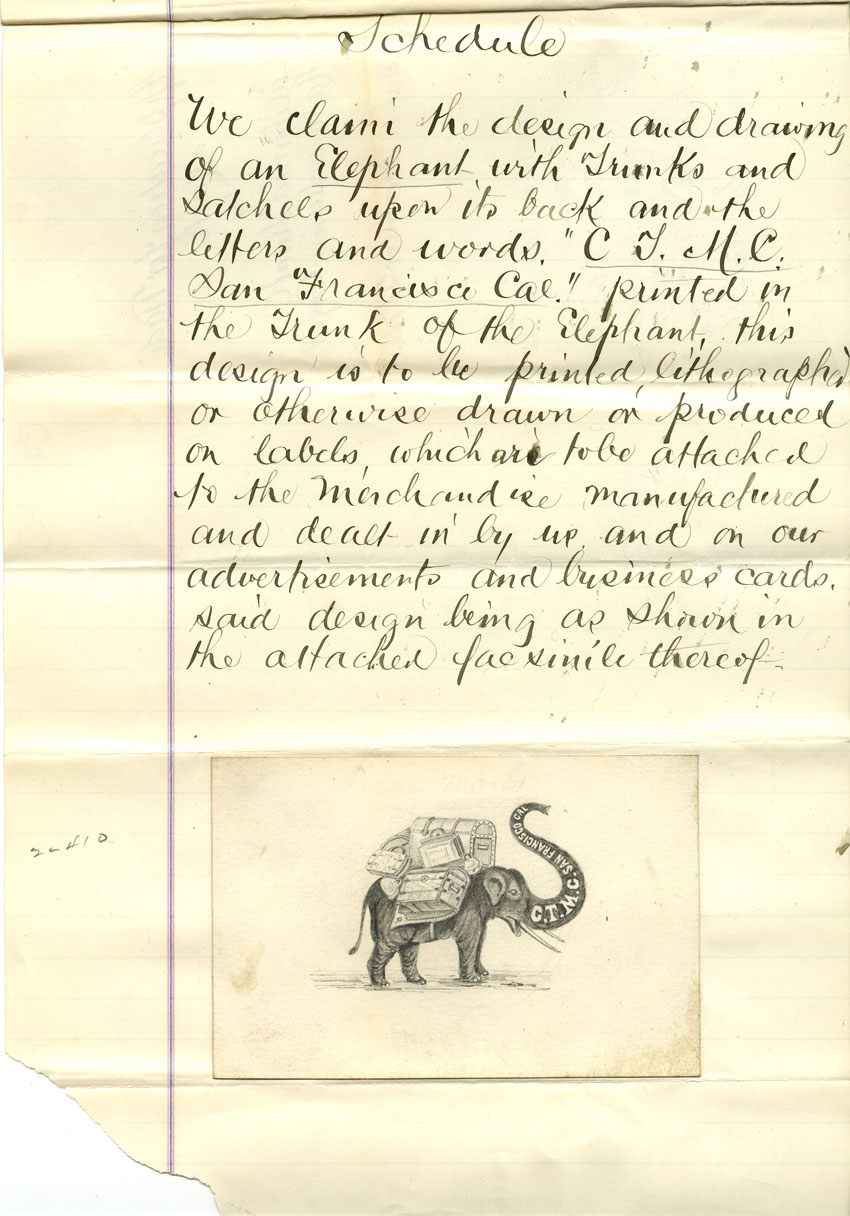 Schedule
We claim the design and drawing
of an Elephant with Trunks and
Satchels upon its back and the
letters and words. "C. T. M. C.
San Francisco Cal." printed in
the Trunk of the Elephant, this
design is to be printed, lithographed
or otherwise drawn or produced
on labels, which are to be attached
to the Merchandise manufactured
and dealt in by us, and on our
advertisements and business cards.
said design being as shown in
the attached facsimile thereof.
C.T.M.C. SAN FRANCISCO CAL